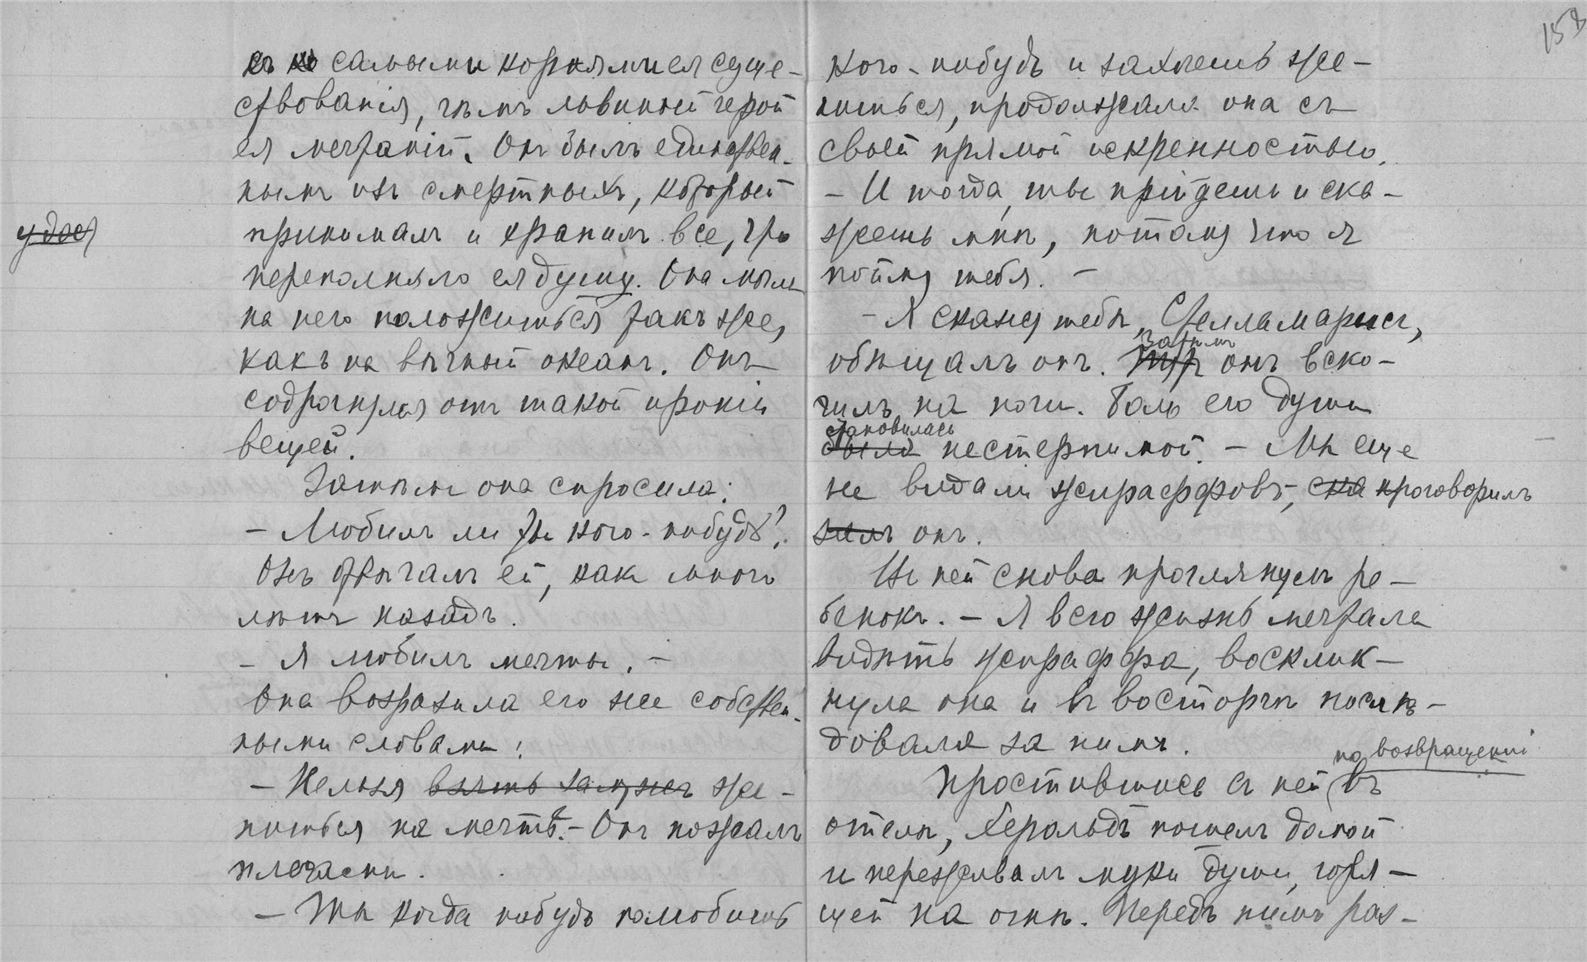 158
съ самыми корнями ея суще-
ствованія, чѣмъ львиный герой
ея мечтаній. Онъ былъ единствен-
нымъ изъ смертныхъ, который
принималъ и хранилъ все, что
переполняло ея душу. Она могла
на него положиться такъ же,
какъ на вѣчный океанъ. Онъ
содрогнулся отъ такой ироніи
вещей.
Затѣмъ она спросила:
— Любилъ ли ты кого-нибудь?
Онъ отвѣчалъ ей, какъ много
лѣтъ назадъ.
— Я любилъ мечты. —
Она возразила его же собствен-
ными словами:
— Нельзя взять замужъ же-
ниться на мечтѣ. — Онъ пожалъ
плечами.
— Ты когда нибудь полюбишь
кого-нибудь и захочешь же-
ниться, продолжала она съ
своей прямой искренностью.
— И тогда, ты прійдешь и ска-
жешь мнѣ, потому что я
пойму тебя. —
— Я скажу тебѣ, Стелламарисъ,
затѣмъ
обѣщалъ онъ. онъ вско-
чилъ на ноги. Боль его души
становилась
была нестерпимой. — Мы еще
не видали жираффовъ, она проговорилъ
онъ.
Въ ней снова проглянулъ ре-
бенокъ. — Я всю жизнь мечтала
видѣть жираффа, восклик-
нула она и въ восторгѣ послѣ-
довала за нимъ.
по возвращеніи
Простившись съ ней въ
отель, Херольдъ пошелъ домой
и переживалъ муки души, горя-
щей на огнѣ. Передъ нимъ раз-